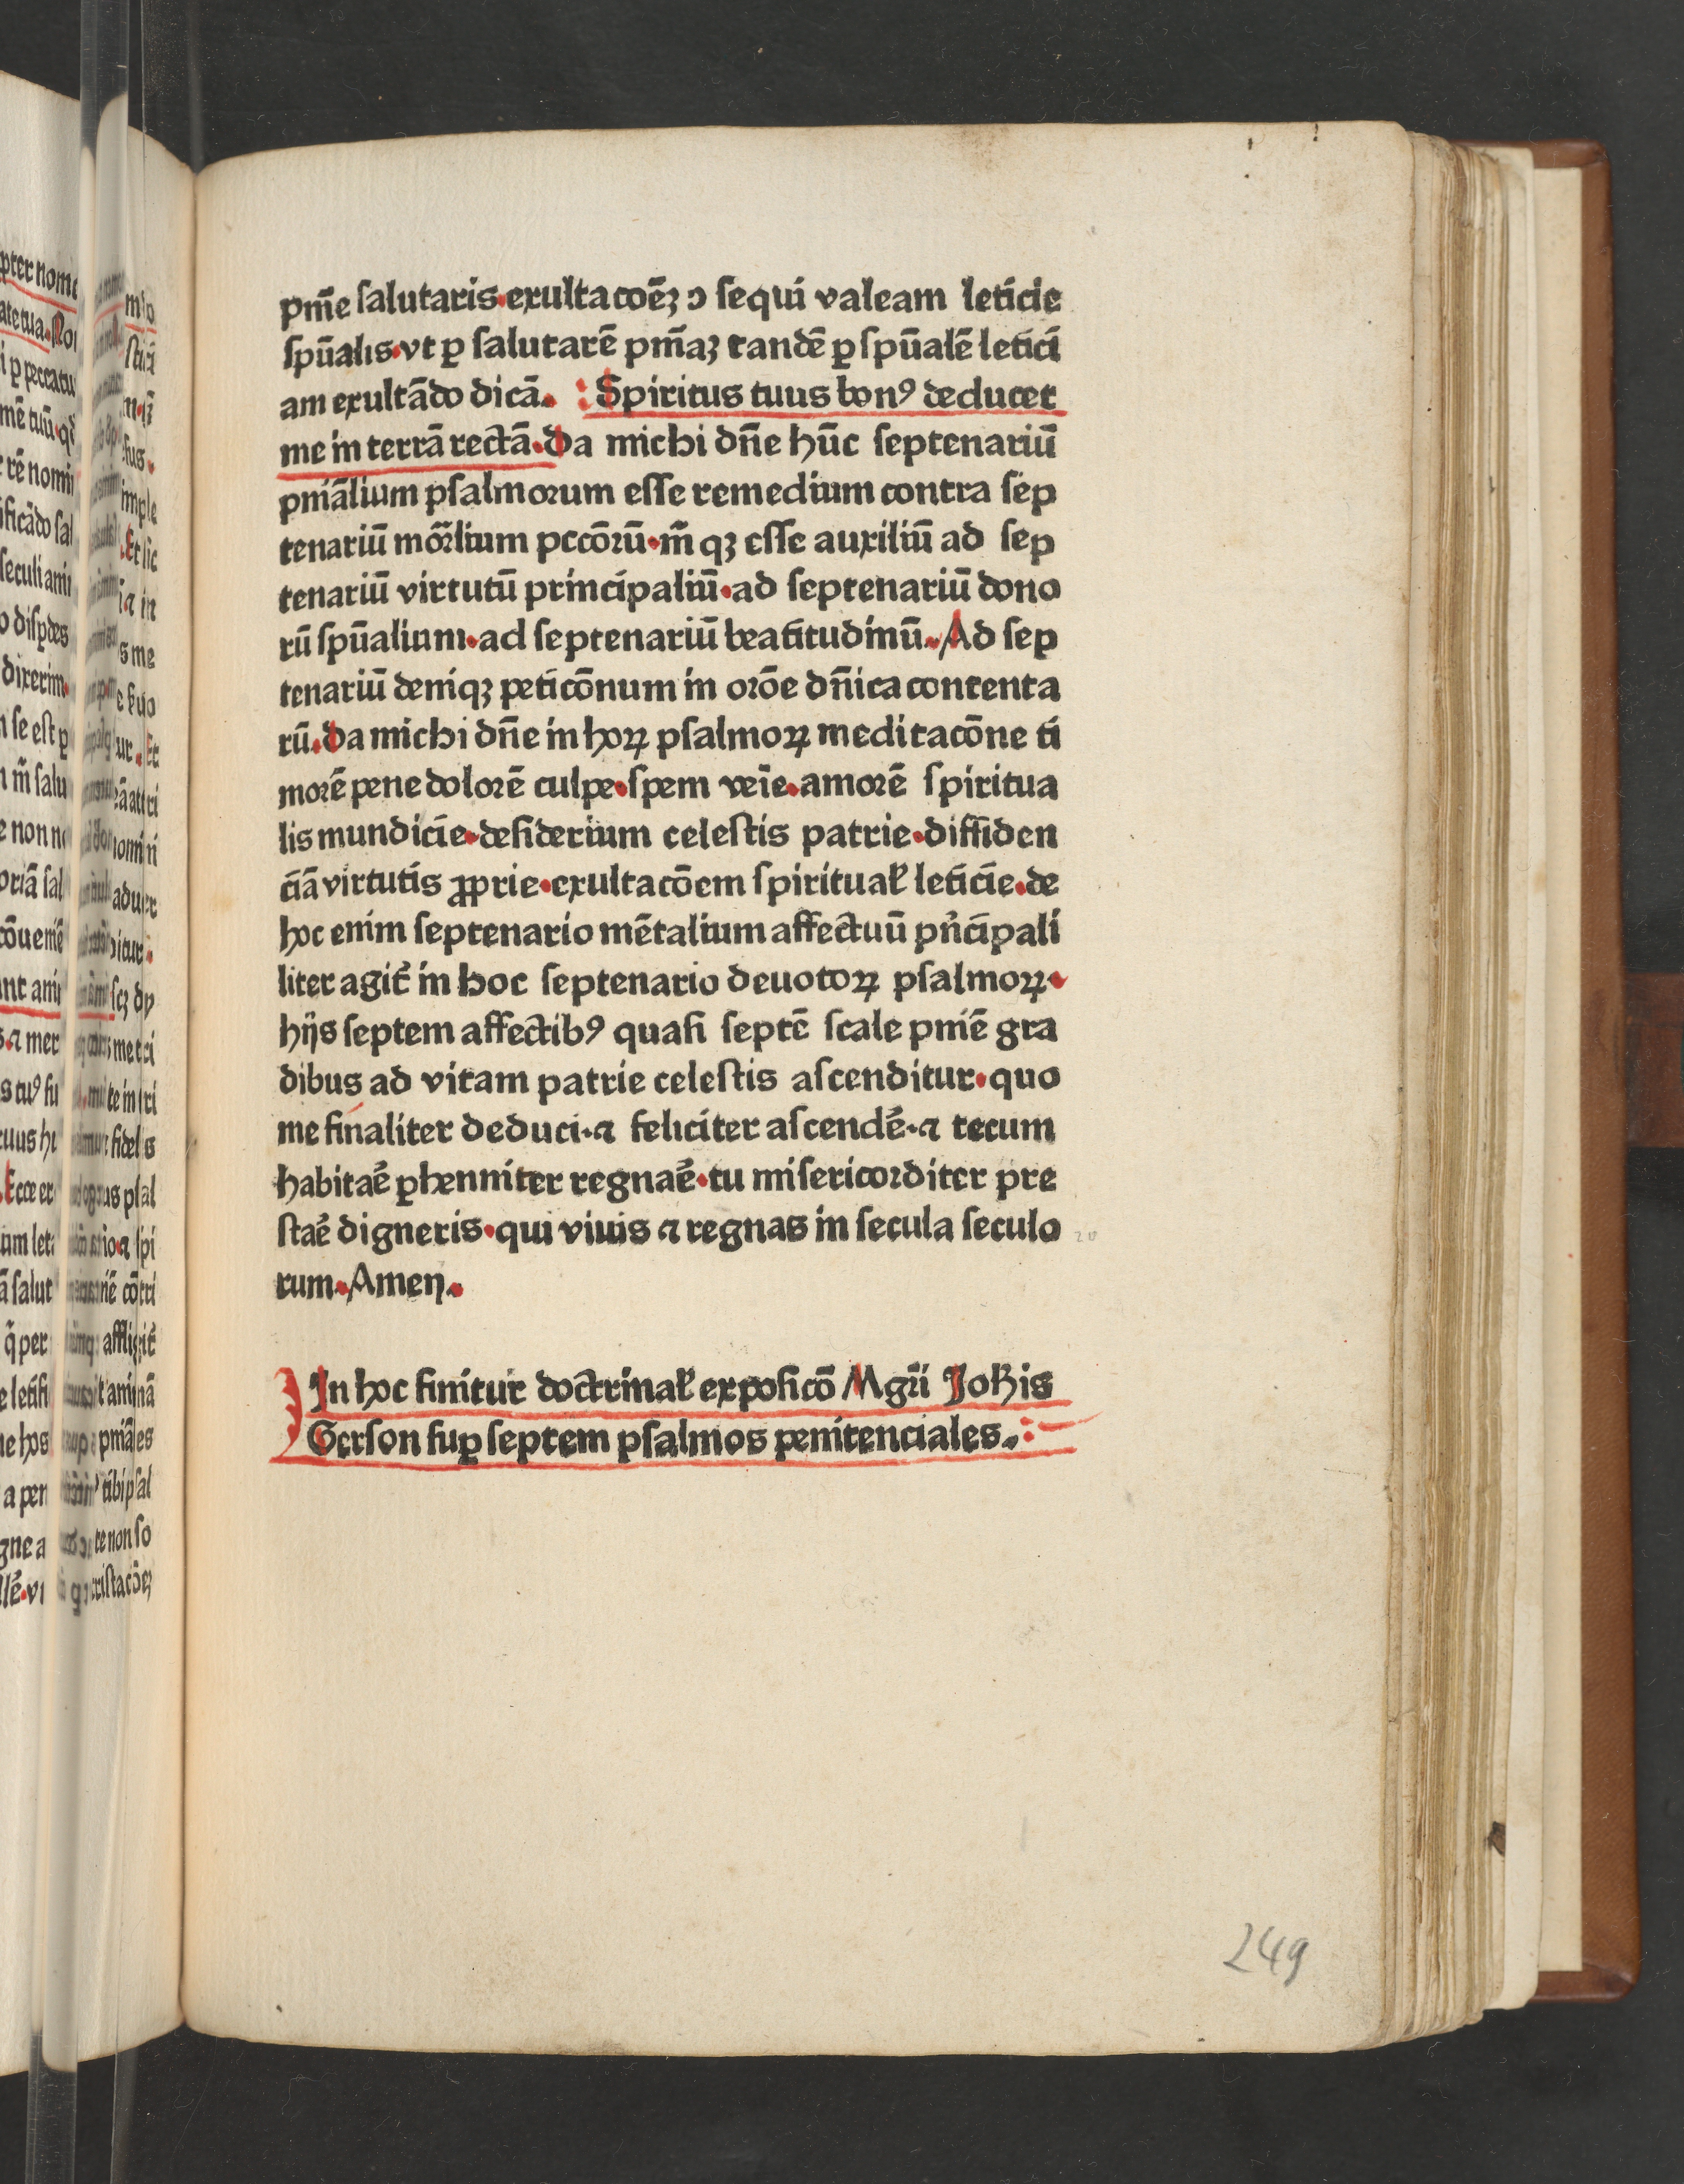 pm̄e ſalutaris·exultacoēꝫ ↄ ſequi valeam leticie
ſpūalis·vt ꝑ ſalutarē pm̄aꝫ tandē ꝑ ſpūalē letici
am exultādo dicā. : Spiritus tuus bonꝰ deducet
me in terrā rectā·Da michi dn̄e hūc ſeptenariū
pniālium pſalmorum eſſe remedium contra ſep
tenariū mor̄lium pccōrū·m̄ qꝫ eſſe auxiliū ad ſep
tenariū virtutū principaliū·ad ſeptenariū dono
rū ſpūalium·ad ſeptenariū beatitudinū·Ad ſep
tenariū deniqꝫ peticōnum in orōe dn̄ica contenta
rū·Da michi dn̄e in hoꝝ pſalmoꝝ meditacōne ti
morē pene dolorē culpe·ſpem veīe·amorē ſpiritua
lis mundicie·deſiderium celeſtis patrie·diffiden
ciā virtutis ꝓprie·exultacōem ſpiritual̄ leticie·de
hoc enim ſeptenario mētalium affectuū pn̄cipali
liter agit᷑ in hoc ſeptenario deuotoꝝ pſalmoꝝ·
hijs ſeptem affectibꝰ quaſi ſeptē ſcale pniē gra
dibus ad vitam patrie celeſtis aſcenditur·quo
me finaliter deduci·⁊ feliciter aſcendē·⁊ tecum
habitaē ꝑhenniter regnaē·tu miſericorditer pre
ſtaē digneris·qui viuis ⁊ regnas in ſecula ſeculo
rum·Amen.
In hoc finitur doctrinal̄ expoſicō Mgr̄i Joh̄is
Gerſon ſuꝑ ſeptem pſalmos penitenciales.:
249